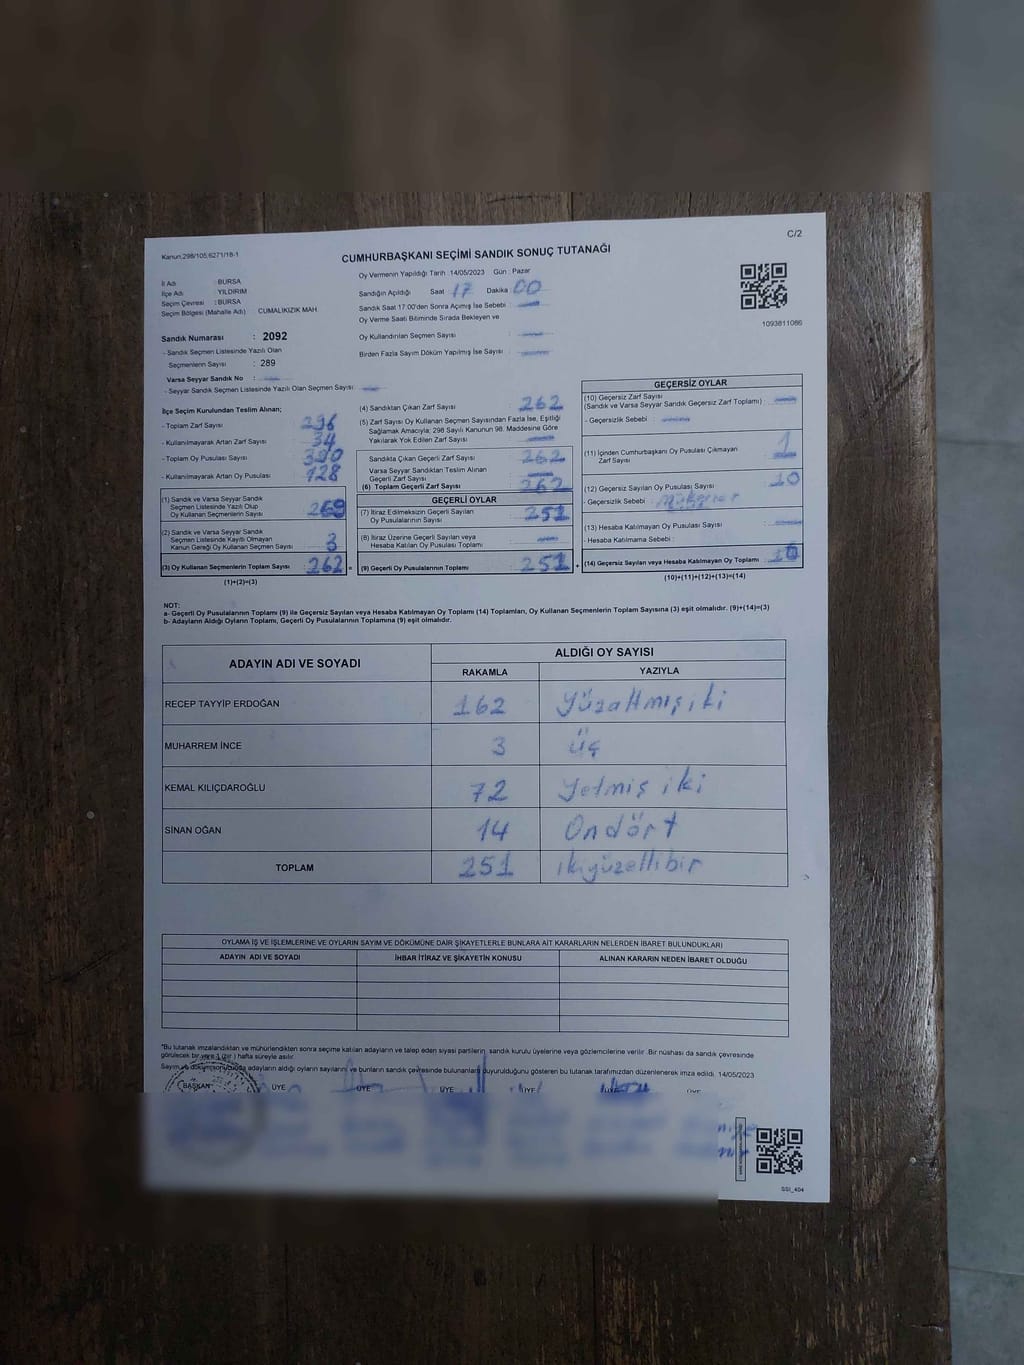 C/2
Kanun,298/105;6271/18-1
CUMHURBAŞKANI SEÇİMİ SANDIK SONUÇ TUTANAĞI
İl Adı : BURSA
İlçe Adı : YILDIRIM
Seçim Çevresi : BURSA
Seçim Bölgesi (Mahalle Adı) CUMALIKIZIK MAH.
Sandık Numarası : 2092
- Sandık Seçmen Listesinde Yazılı Olan
Seçmenlerin Sayısı : 289
Varsa Seyyar Sandık No :
- Seyyar Sandık Seçmen Listesinde Yazılı Olan Seçmen Sayısı
Oy Vermenin Yapıldığı Tarih : 14/05/2023 Gün : Pazar
Sandığın Açıldığı Saat 17 Dakika 00
Sandık Saat 17:00'den Sonra Açımış İse Sebebi
Oy Verme Saati Bitiminde Sırada Bekleyen ve
Oy Kullandırılan Seçmen Sayısı :
Birden Fazla Sayım Döküm Yapılmış İse Sayısı :
1093811086
İlçe Seçim Kurulundan Teslim Alınan;
- Toplam Zarf Sayısı : 296
- Kullanılmayarak Artan Zarf Sayısı : 34
- Toplam Oy Pusulası Sayısı : 390
- Kullanılmayarak Artan Oy Pusulası : 128
(1) Sandık ve Varsa Seyyar Sandık
Seçmen Listesinde Yazılı Olup
Oy Kullanan Seçmenlerin Sayısı
(2) Sandık ve Varsa Seyyar Sandık
Seçmen Listesinde Kayıtlı Olmayan
Kanun Gereği Oy Kullanan Seçmen Sayısı 3
(3) Oy Kullanan Seçmenlerin Toplam Sayısı : 262 =
(1)+(2)=(3)
(4) Sandıktan Çıkan Zarf Sayısı : 262
(5) Zarf Sayısı Oy Kullanan Seçmen Sayısından Fazla İse, Eşitliği
Sağlamak Amacıyla; 298 Sayılı Kanunun 98. Maddesine Göre
Yakılarak Yok Edilen Zarf Sayısı :
Sandıkta Çıkan Geçerli Zarf Sayısı : 262
Varsa Seyyar Sandıktan Teslim Alınan
Geçerli Zarf Sayısı :
(6) Toplam Geçerli Zarf Sayısı : 262
GEÇERLİ OYLAR
(7) İtiraz Edilmeksizin Geçerli Sayılan
Oy Pusulalarının Sayısı : 251
(8) İtiraz Üzerine Geçerli Sayılan veya
Hesaba Katılan Oy Pusulası Toplamı :
(9) Geçerli Oy Pusulalarının Toplamı : 251 +
GEÇERSİZ OYLAR
(10) Geçersiz Zarf Sayısı
(Sandık ve Varsa Seyyar Sandık Geçersiz Zarf Toplamı) :
- Geçersizlik Sebebi :
(11) İçinden Cumhurbaşkanı Oy Pusulası Çıkmayan
Zarf Sayısı : 1
(12) Geçersiz Sayılan Oy Pusulası Sayısı : 10
- Geçersizlik Sebebi :
(13) Hesaba Katılmayan Oy Pusulası Sayısı :
- Hesaba Katılmama Sebebi :
(14) Geçersiz Sayılan veya Hesaba Katılmayan Oy Toplamı :
(10)+(11)+(12)+(13)=(14)
NOT:
a- Geçerli Oy Pusulalarının Toplamı (9) ile Geçersiz Sayılan veya Hesaba Katılmayan Oy Toplamı (14) Toplamları, Oy Kullanan Seçmenlerin Toplam Sayısına (3) eşit olmalıdır. (9)+(14)=(3)
b- Adayların Aldığı Oyların Toplamı, Geçerli Oy Pusulalarının Toplamına (9) eşit olmalıdır.
ADAYIN ADI VE SOYADI ALDIĞI OY SAYISI
RAKAMLA YAZIYLA
RECEP TAYYİP ERDOĞAN 162 Yüzaltmışiki
MUHARREM İNCE 3 üç
KEMAL KILIÇDAROĞLU 72 Yetmiş iki
SİNAN OĞAN 14 Ondört
TOPLAM 251 ikiyüzellibir
OYLAMA İŞ VE İŞLEMLERİNE VE OYLARIN SAYIM VE DÖKÜMÜNE DAİR ŞİKAYETLERLE BUNLARA AİT KARARLARIN NELERDEN İBARET BULUNDUKLARI
ADAYIN ADI VE SOYADI İHBAR İTİRAZ VE ŞİKAYETİN KONUSU ALINAN KARARIN NEDEN İBARET OLDUĞU
"Bu tutanak imzalandıktan ve mühürlendikten sonra seçime katılan adayların ve talep eden siyasi partilerin, sandık kurulu üyelerine veya gözlemcilerine verilir. Bir nüshası da sandık çevresinde
görülecek bir yere 1 (bir) hafta süreyle asılır.
Sayım ve döküm sonucunda adayların aldığı oyların sayısını ve bunların sandık çevresinde bulunanlara duyurulduğunu gösteren bu tutanak tarafımızdan düzenlenerek imza edildi. 14/05/2023
BAŞKAN ÜYE ÜYE ÜYE ÜYE ÜYE ÜYE
SSI_404